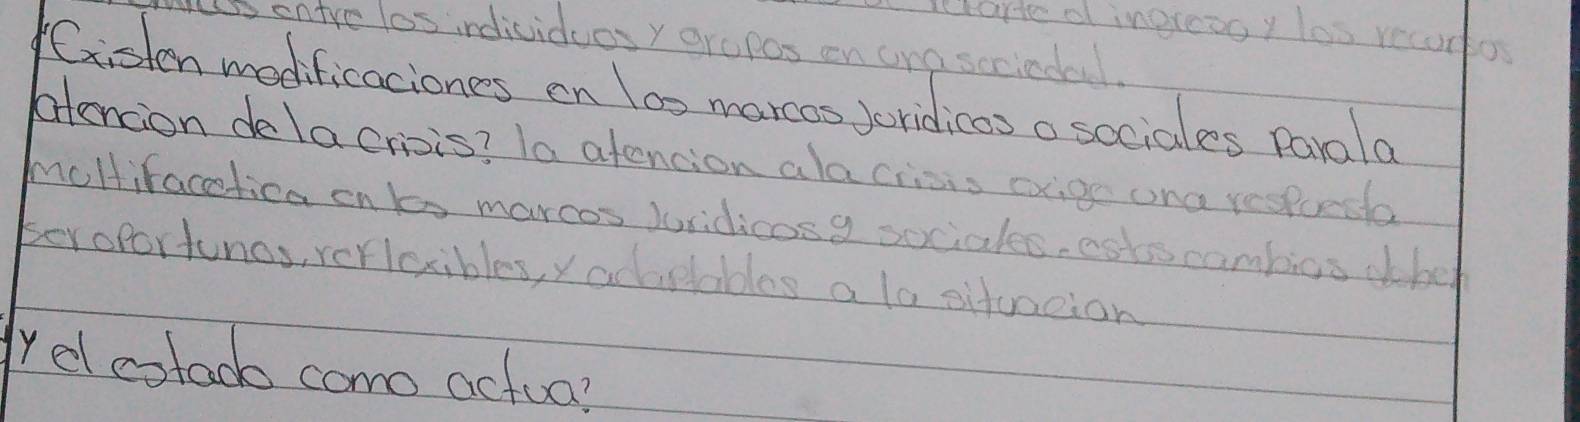 entre los individuos y grupos en una sociedad. d ingreso y los recursos
¿Existen modificaciones en los marcos Juridicos o sociales Para la
atencion de la crisis? la atencion a la crisis exige una respuesta
multifacetica en los marcos Juridicos y sociales. estos cambios deben
ser oportunos, reflexibles, y adaptables a la situacion
y el estado como actua?